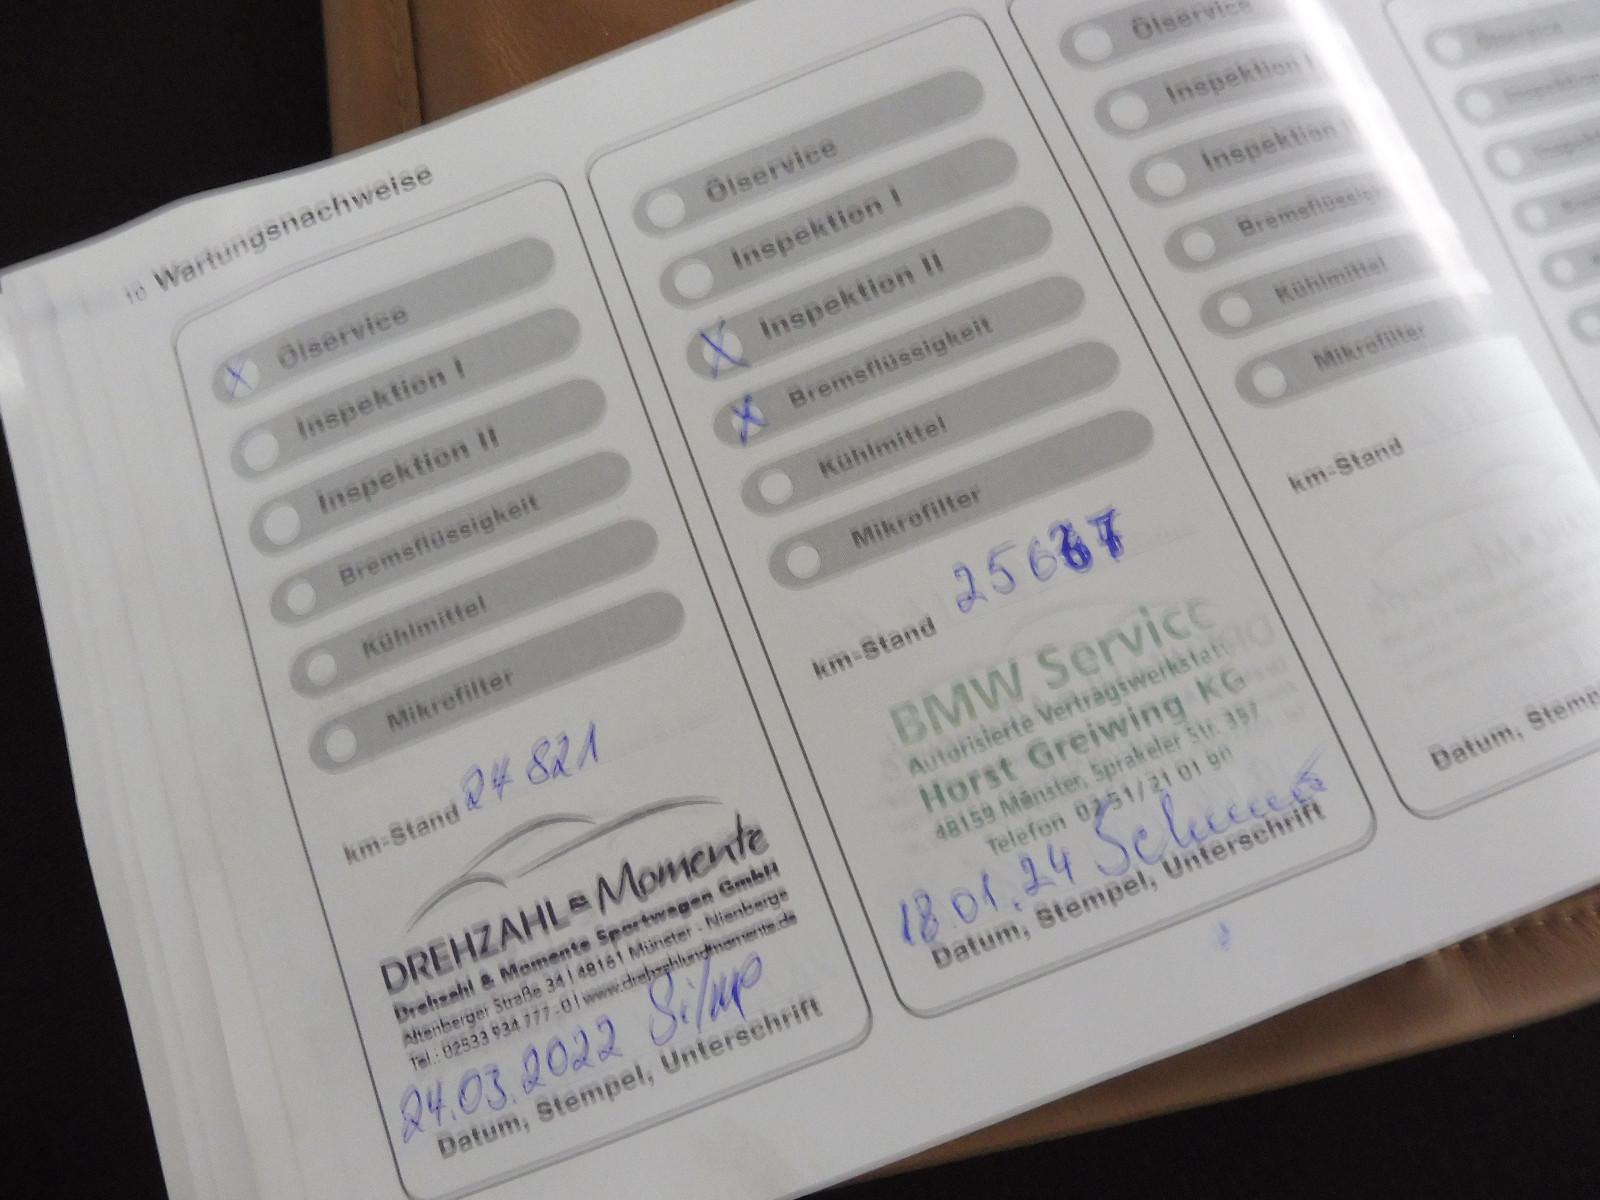 10 Wartungsnachweise
Ölservice
Inspektion I
Inspektion II
Bremsflüssigkeit
Kühlmittel
Mikrofilter
km-Stand 24 821
DREHZAHL & Momente
Drehzahl & Momente Sportwagen GmbH
Altenberger Straße 34 | 48161 Münster - Nienberge
Tel.: 02533 934 777-0 | www.drehzahlundmomente.de
24.03.2022
Datum, Stempel, Unterschrift
Ölservice
Inspektion I
Inspektion II
Bremsflüssigkeit
Kühlmittel
Mikrofilter
km-Stand
BMW Service
Autorisierte Vertragswerkstatt
Horst Greiwing KG
48159 Münster, Sprakeler Str. 397
Telefon 02 51/21 01 90
18.01.24
Datum, Stempel, Unterschrift
Ölservice
Inspektion I
Inspektion
Bremsflüssig
Kühlmittel
Mikrofilter
km-Stand
Datum, Stemp
Ölservice